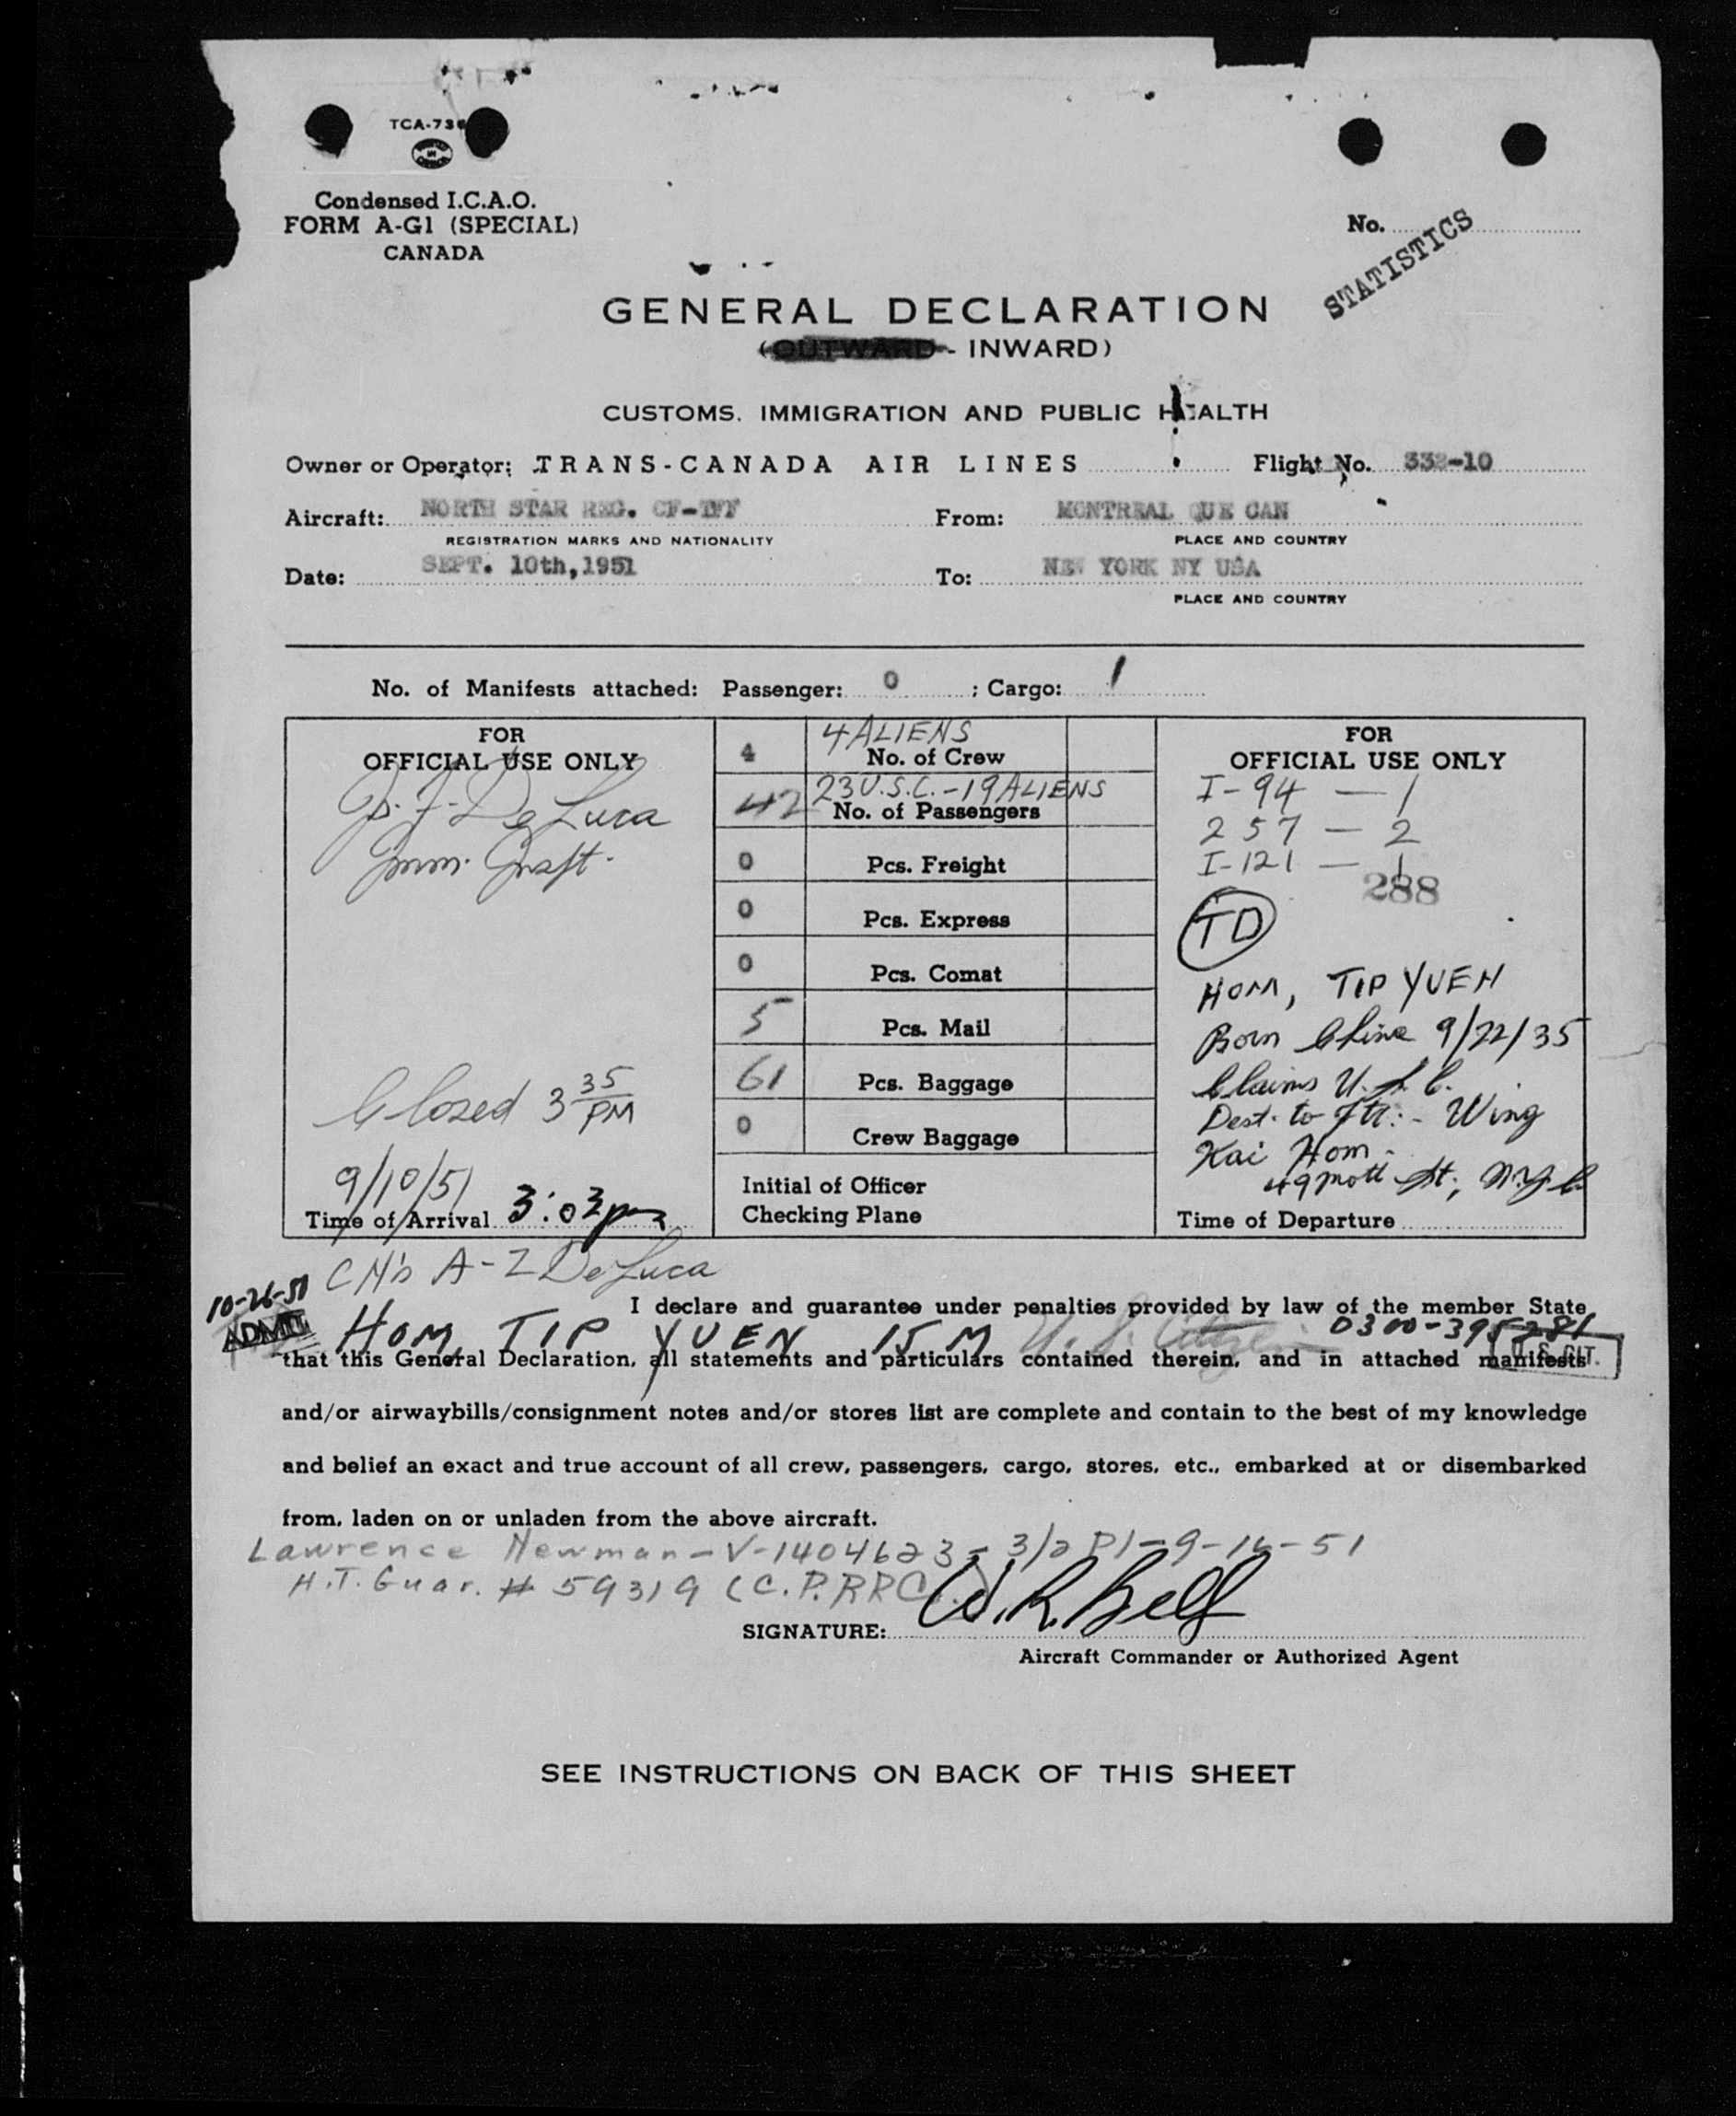 TCA-73
Condensed I.C.A.O.
FORM A-G1 (SPECIAL)
CANADA
No.
STATISTICS
GENERAL DECLARATION
(OUTWARD - INWARD)
CUSTOMS, IMMIGRATION AND PUBLIC HEALTH
Owner or Operator: TRANS-CANADA AIR LINES Flight No. 332-10
Aircraft: NORTH STAR REG. CF-TFF From: MONTREAL QUE CAN
REGISTRATION MARKS AND NATIONALITY PLACE AND COUNTRY
Date: SEPT. 10th,1951 To: NEW YORK NY USA
PLACE AND COUNTRY
No. of Manifests attached: Passenger: 0 ; Cargo: 1
FOR
OFFICIAL USE ONLY
De Luca
Imm. Inspt.
Closed 3 35 PM
9/10/51
Time of Arrival 3:03pm
4 ALIENS
4 No. of Crew
23 U.S.C. - 19 ALIENS
42 No. of Passengers
0 Pcs. Freight
0 Pcs. Express
0 Pcs. Comat
5 Pcs. Mail
61 Pcs. Baggage
0 Crew Baggage
Initial of Officer
Checking Plane
FOR
OFFICIAL USE ONLY
I-94 — 1
257 — 2
I-121 — 1
288
TD
HOM, TIP YUEN
Born China 9/22/35
Claims U.S.C.
Dest. to Ftr: - Wing
Kai Hom -
49 Mott St., N.Y.C.
Time of Departure
CM's A-Z De Luca
10-26-51
ADMIT
I declare and guarantee under penalties provided by law of the member State
HOM, TIP YUEN 15 M U.S. Citizen 0300-395281
that this General Declaration, all statements and particulars contained therein, and in attached manifests
U.S. CIT.
and/or airwaybills/consignment notes and/or stores list are complete and contain to the best of my knowledge
and belief an exact and true account of all crew, passengers, cargo, stores, etc., embarked at or disembarked
from, laden on or unladen from the above aircraft.
Lawrence Newman - V-1404623 - 3/2 P1-9-16-51
H.T. Guar. # 59319 (C.P.RRC.)
SIGNATURE: W.R. Bell
Aircraft Commander or Authorized Agent
SEE INSTRUCTIONS ON BACK OF THIS SHEET